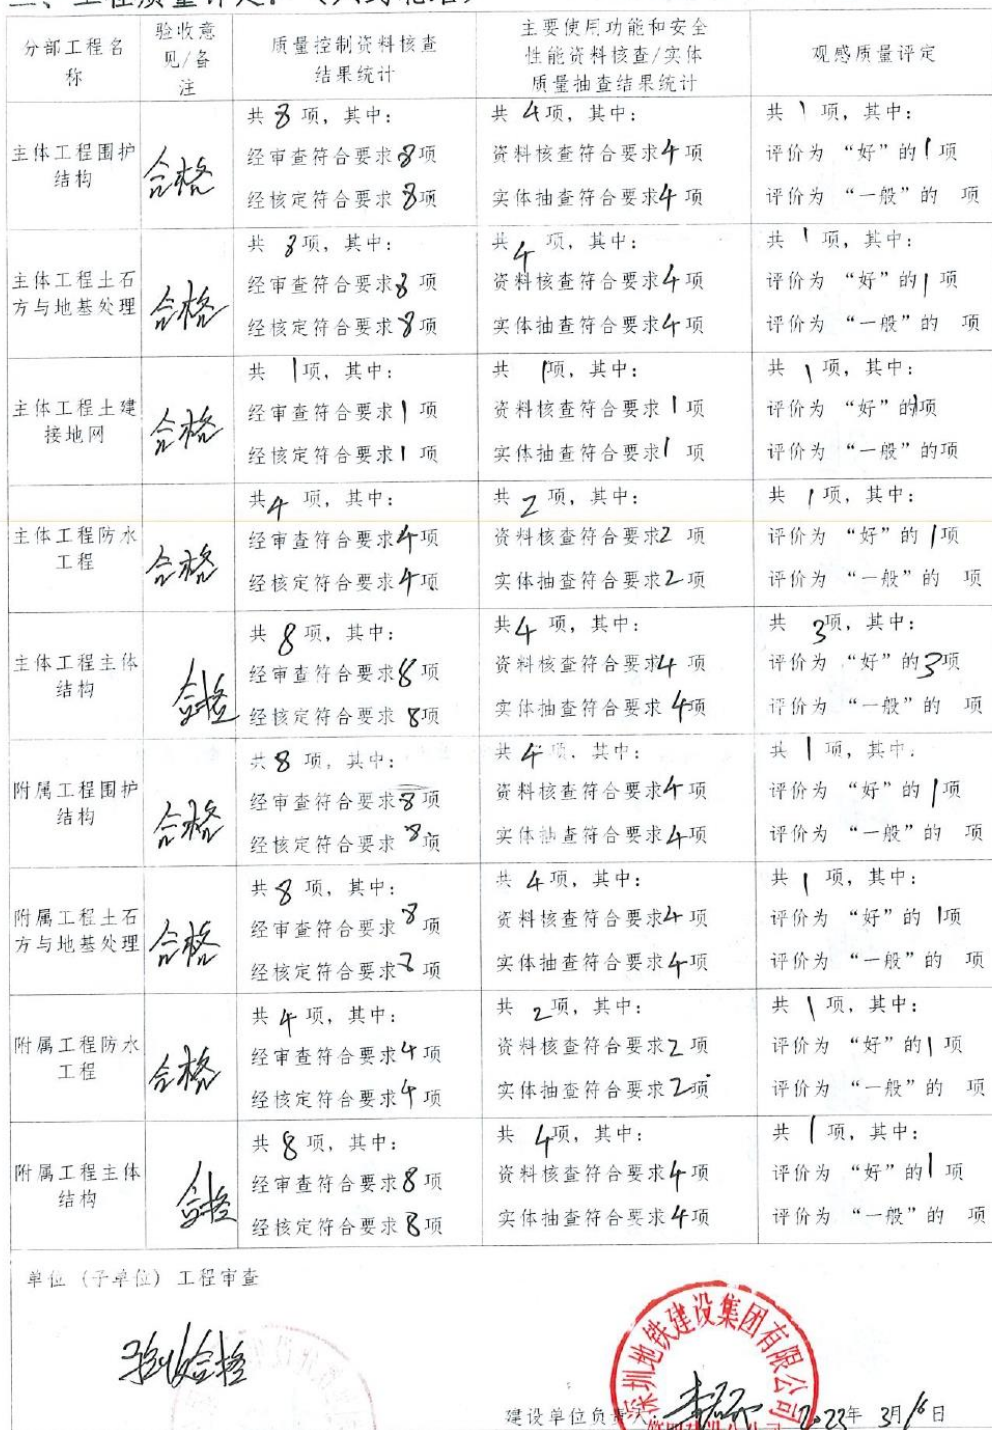 二、工程质量评定：
分部工程名称
验收意见/备注
质量控制资料核查结果统计
主要使用功能和安全性能资料核查/实体质量抽查结果统计
观感质量评定
主体工程围护结构
合格
共 8 项，其中：
经审查符合要求 8 项
经核定符合要求 8 项
共 4 项，其中：
资料核查符合要求 4 项
实体抽查符合要求 4 项
共 1 项，其中：
评价为“好”的 1 项
评价为“一般”的 项
主体工程土石方与地基处理
合格
共 8 项，其中：
经审查符合要求 8 项
经核定符合要求 8 项
共 4 项，其中：
资料核查符合要求 4 项
实体抽查符合要求 4 项
共 1 项，其中：
评价为“好”的 1 项
评价为“一般”的 项
主体工程土建接地网
合格
共 1 项，其中：
经审查符合要求 1 项
经核定符合要求 1 项
共 1 项，其中：
资料核查符合要求 1 项
实体抽查符合要求 1 项
共 1 项，其中：
评价为“好”的 1 项
评价为“一般”的 项
主体工程防水工程
合格
共 4 项，其中：
经审查符合要求 4 项
经核定符合要求 4 项
共 2 项，其中：
资料核查符合要求 2 项
实体抽查符合要求 2 项
共 1 项，其中：
评价为“好”的 1 项
评价为“一般”的 项
主体工程主体结构
合格
共 8 项，其中：
经审查符合要求 8 项
经核定符合要求 8 项
共 4 项，其中：
资料核查符合要求 4 项
实体抽查符合要求 4 项
共 3 项，其中：
评价为“好”的 3 项
评价为“一般”的 项
附属工程围护结构
合格
共 8 项，其中：
经审查符合要求 8 项
经核定符合要求 8 项
共 4 项，其中：
资料核查符合要求 4 项
实体抽查符合要求 4 项
共 1 项，其中：
评价为“好”的 1 项
评价为“一般”的 项
附属工程土石方与地基处理
合格
共 8 项，其中：
经审查符合要求 8 项
经核定符合要求 8 项
共 4 项，其中：
资料核查符合要求 4 项
实体抽查符合要求 4 项
共 1 项，其中：
评价为“好”的 1 项
评价为“一般”的 项
附属工程防水工程
合格
共 4 项，其中：
经审查符合要求 4 项
经核定符合要求 4 项
共 2 项，其中：
资料核查符合要求 2 项
实体抽查符合要求 2 项
共 1 项，其中：
评价为“好”的 1 项
评价为“一般”的 项
附属工程主体结构
合格
共 8 项，其中：
经审查符合要求 8 项
经核定符合要求 8 项
共 4 项，其中：
资料核查符合要求 4 项
实体抽查符合要求 4 项
共 1 项，其中：
评价为“好”的 1 项
评价为“一般”的 项
单位（子单位）工程审查
验收合格
深圳地铁建设集团有限公司
建设单位负责人：
2023年 3月16日